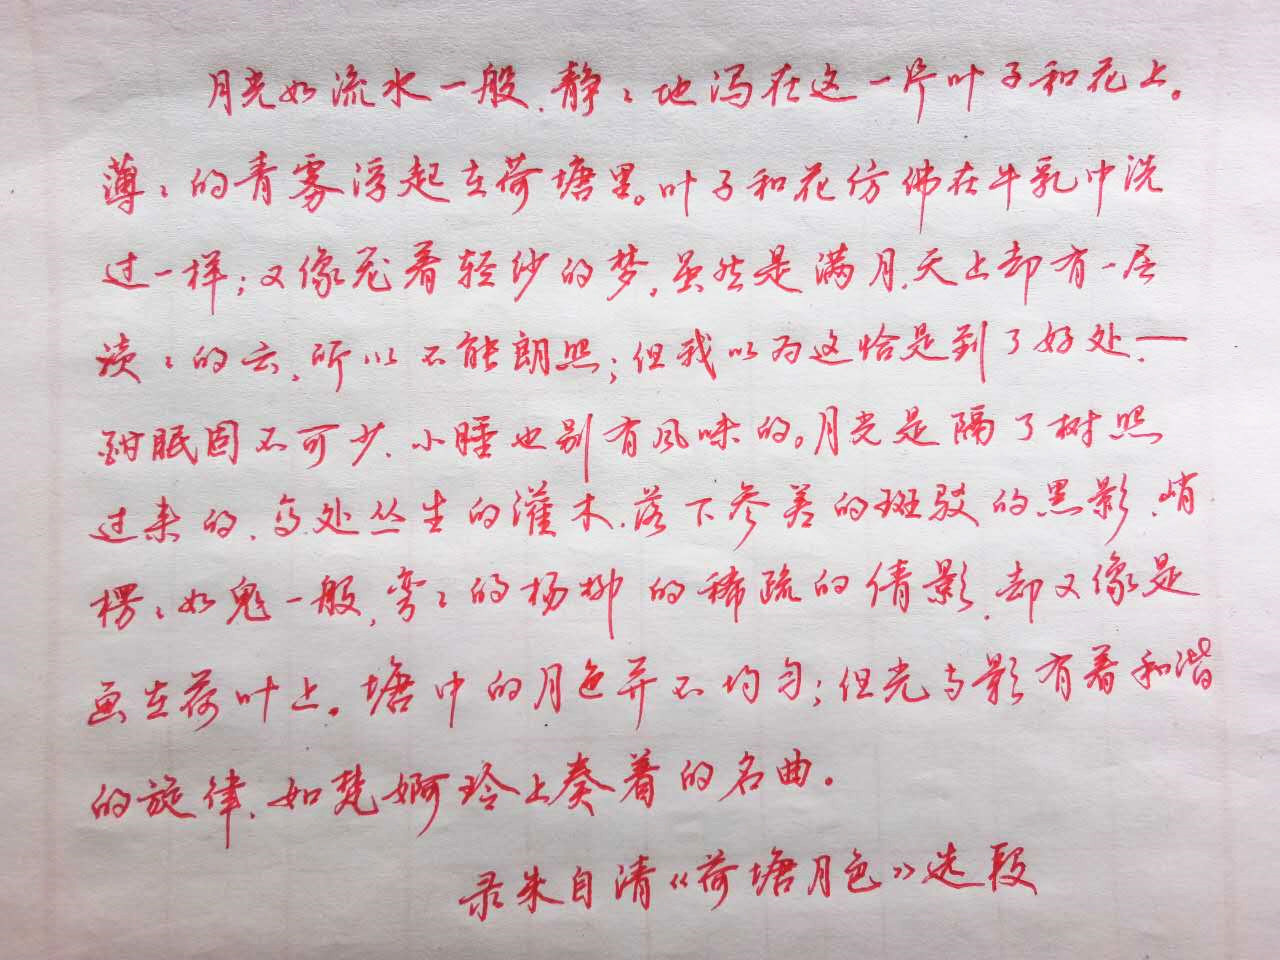 月光如流水一般,静々地泻在这一片叶子和花上。
薄々的青雾浮起在荷塘里。叶子和花仿佛在牛乳中洗
过一样;又像笼着轻纱的梦,虽然是满月,天上却有一层
淡々的云,所以不能朗照;但我以为这恰是到了好处,一
酣眠固不可少,小睡也别有风味的。月光是隔了树照
过来的,高处丛生的灌木,落下参差的斑驳的黑影,峭
楞々如鬼一般,弯々的杨柳的稀疏的倩影,却又像是
画在荷叶上。塘中的月色并不均匀;但光与影有着和谐
的旋律,如梵婀玲上奏着的名曲。
录朱自清《荷塘月色》选段